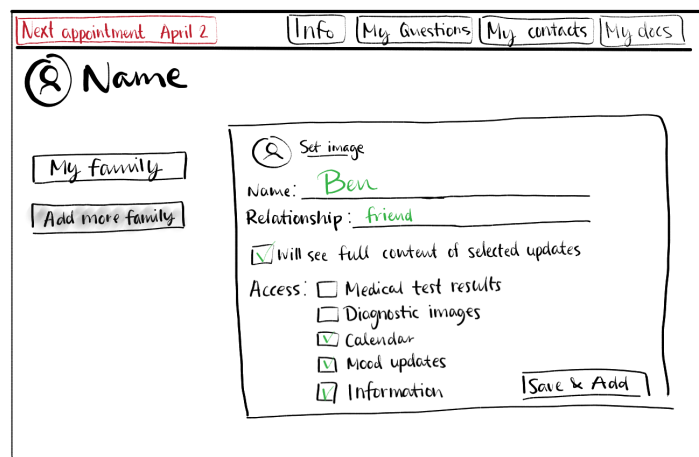 Next appointment April 2 Info My Questions My contacts My docs
Name
My family
Add more family
Set image
Name: Ben
Relationship: friend
Will see full content of selected updates
Access: Medical test results
Diagnostic images
Calendar
Mood updates
Information
Save & Add